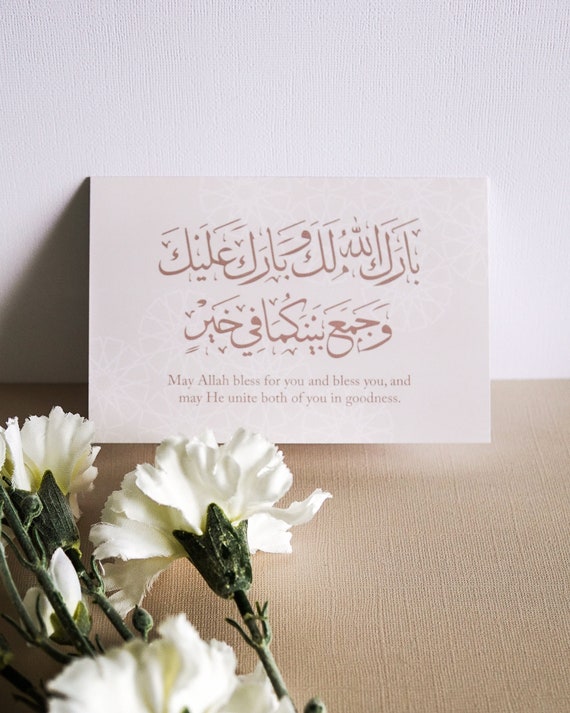 بَارَكَ اللَّهُ لَكَ وَبَارَكَ عَلَيْكَ
وَجَمَعَ بَيْنَكُمَا فِي خَيْرٍ
May Allah bless for you and bless you, and
may He unite both of you in goodness.